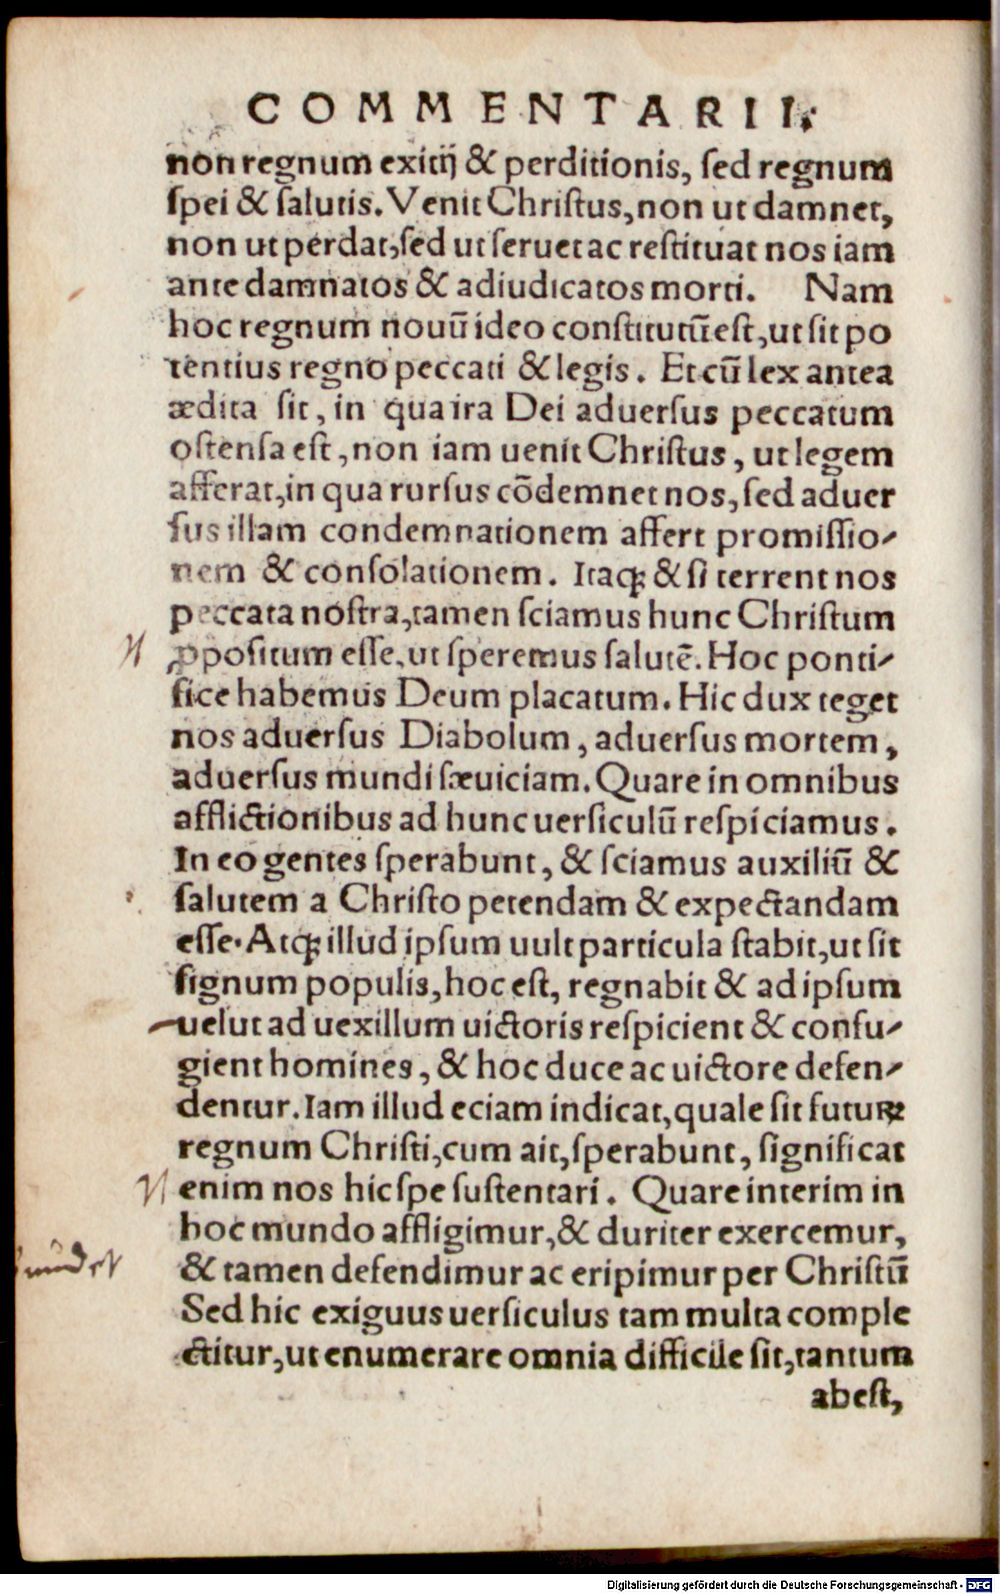 COMMENTARII.
non regnum exitij & perditionis, sed regnum
spei & salutis. Venit Christus, non ut damnet,
non ut perdat, sed ut seruet ac restituat nos iam
ante damnatos & adiudicatos morti. Nam
hoc regnum nouũ ideo constitutũ est, ut sit po
tentius regno peccati & legis. Et cũ lex antea
ædita sit, in qua ira Dei aduersus peccatum
ostensa est, non iam uenit Christus, ut legem
afferat, in qua rursus cõdemnet nos, sed aduer
sus illam condemnationem affert promissio-
nem & consolationem. Itaqꝫ & si terrent nos
peccata nostra, tamen sciamus hunc Christum
ꝓpositum esse, ut speremus salutẽ. Hoc ponti-
fice habemus Deum placatum. Hic dux teget
nos aduersus Diabolum, aduersus mortem,
aduersus mundi sæuiciam. Quare in omnibus
afflictionibus ad hunc uersiculũ respiciamus.
In eo gentes sperabunt, & sciamus auxiliũ &
salutem a Christo petendam & expectandam
esse. Atqꝫ illud ipsum uult particula stabit, ut sit
signum populis, hoc est, regnabit & ad ipsum
uelut ad uexillum uictoris respicient & confu-
gient homines, & hoc duce ac uictore defen-
dentur. Iam illud eciam indicat, quale sit futuꝝ
regnum Christi, cum ait, sperabunt, significat
enim nos hic spe sustentari. Quare interim in
hoc mundo affligimur, & duriter exercemur,
& tamen defendimur ac eripimur per Christũ
Sed hic exiguus uersiculus tam multa comple
ctitur, ut enumerare omnia difficile sit, tantum
abest,
Digitalisierung gefördert durch die Deutsche Forschungsgemeinschaft - DFG